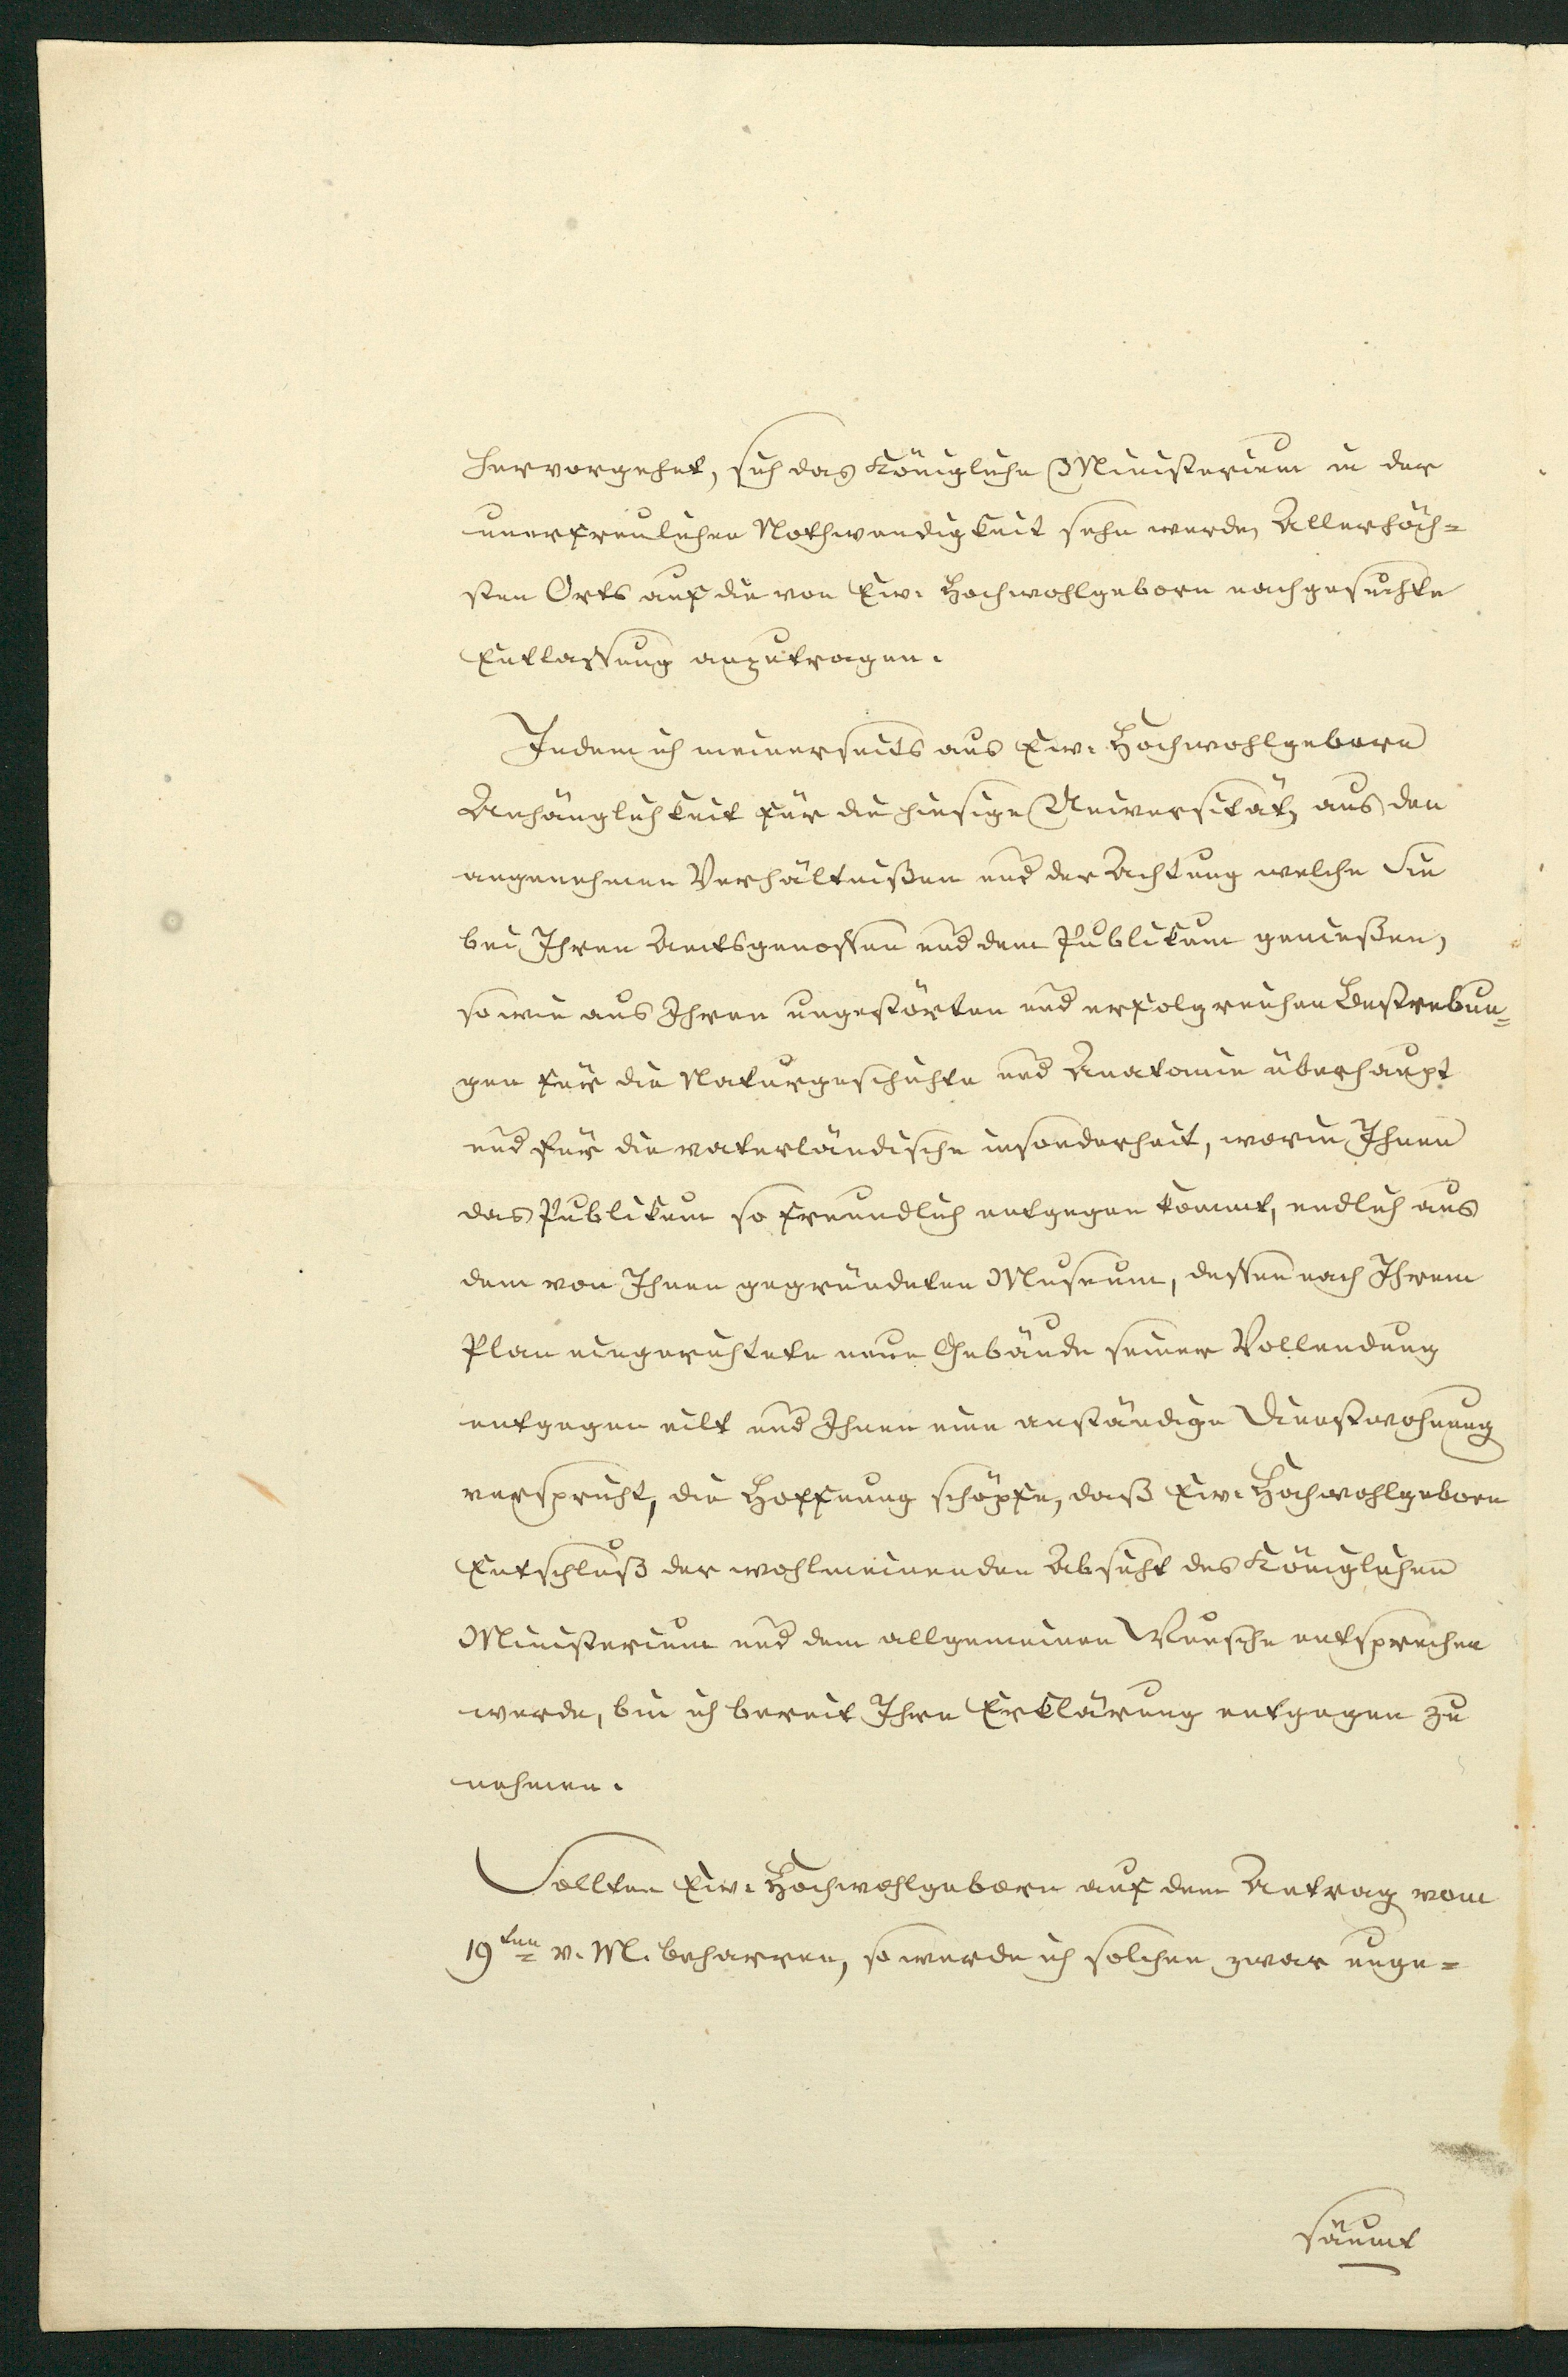 hervorgehet, sich das Königliche Ministerium in der
unerfreulichen Nothwendigkeit sehn werde, Allerhöch=
sten Orts auf die von Ew. Hochwohlgeborn nachgesuchte
Entlassung anzutragen.
Indem ich meinerseits aus Ew. Hochwohlgeborn
Anhänglichkeit für die hiesige Universität, aus den
angenehmen Verhältnißen und der Achtung welche Sie
bei Ihren Amtsgenossen und dem Publikum genießen,
so wie aus Ihren ungestörten und erfolgreichen Bestrebun=
gen für die Naturgeschichte und Anatomie überhaupt
und für die vaterländische insonderheit, worin Ihnen
das Publikum so freundlich entgegen kommt, endlich aus
dem von Ihnen gegründeten Museum, dessen nach Ihrem
Plan eingerichtete neue Gebäude seiner Vollendung
entgegen eilt und Ihnen eine anständige Dienstwohnung
verspricht, die Hoffnung schöpfe, daß Ew. Hochwohlgeborn
Entschluß der wohlmeinenden Absicht des Königlichen
Ministerium und dem allgemeinen Wunsche entsprechen
werde, bin ich bereit Ihre Erklärung entgegen zu
nehmen.
Sollten Ew. Hochwohlgeborn auf dem Antrag vom
19ten v. M. beharren, so werde ich solchen zwar unge=
säumt